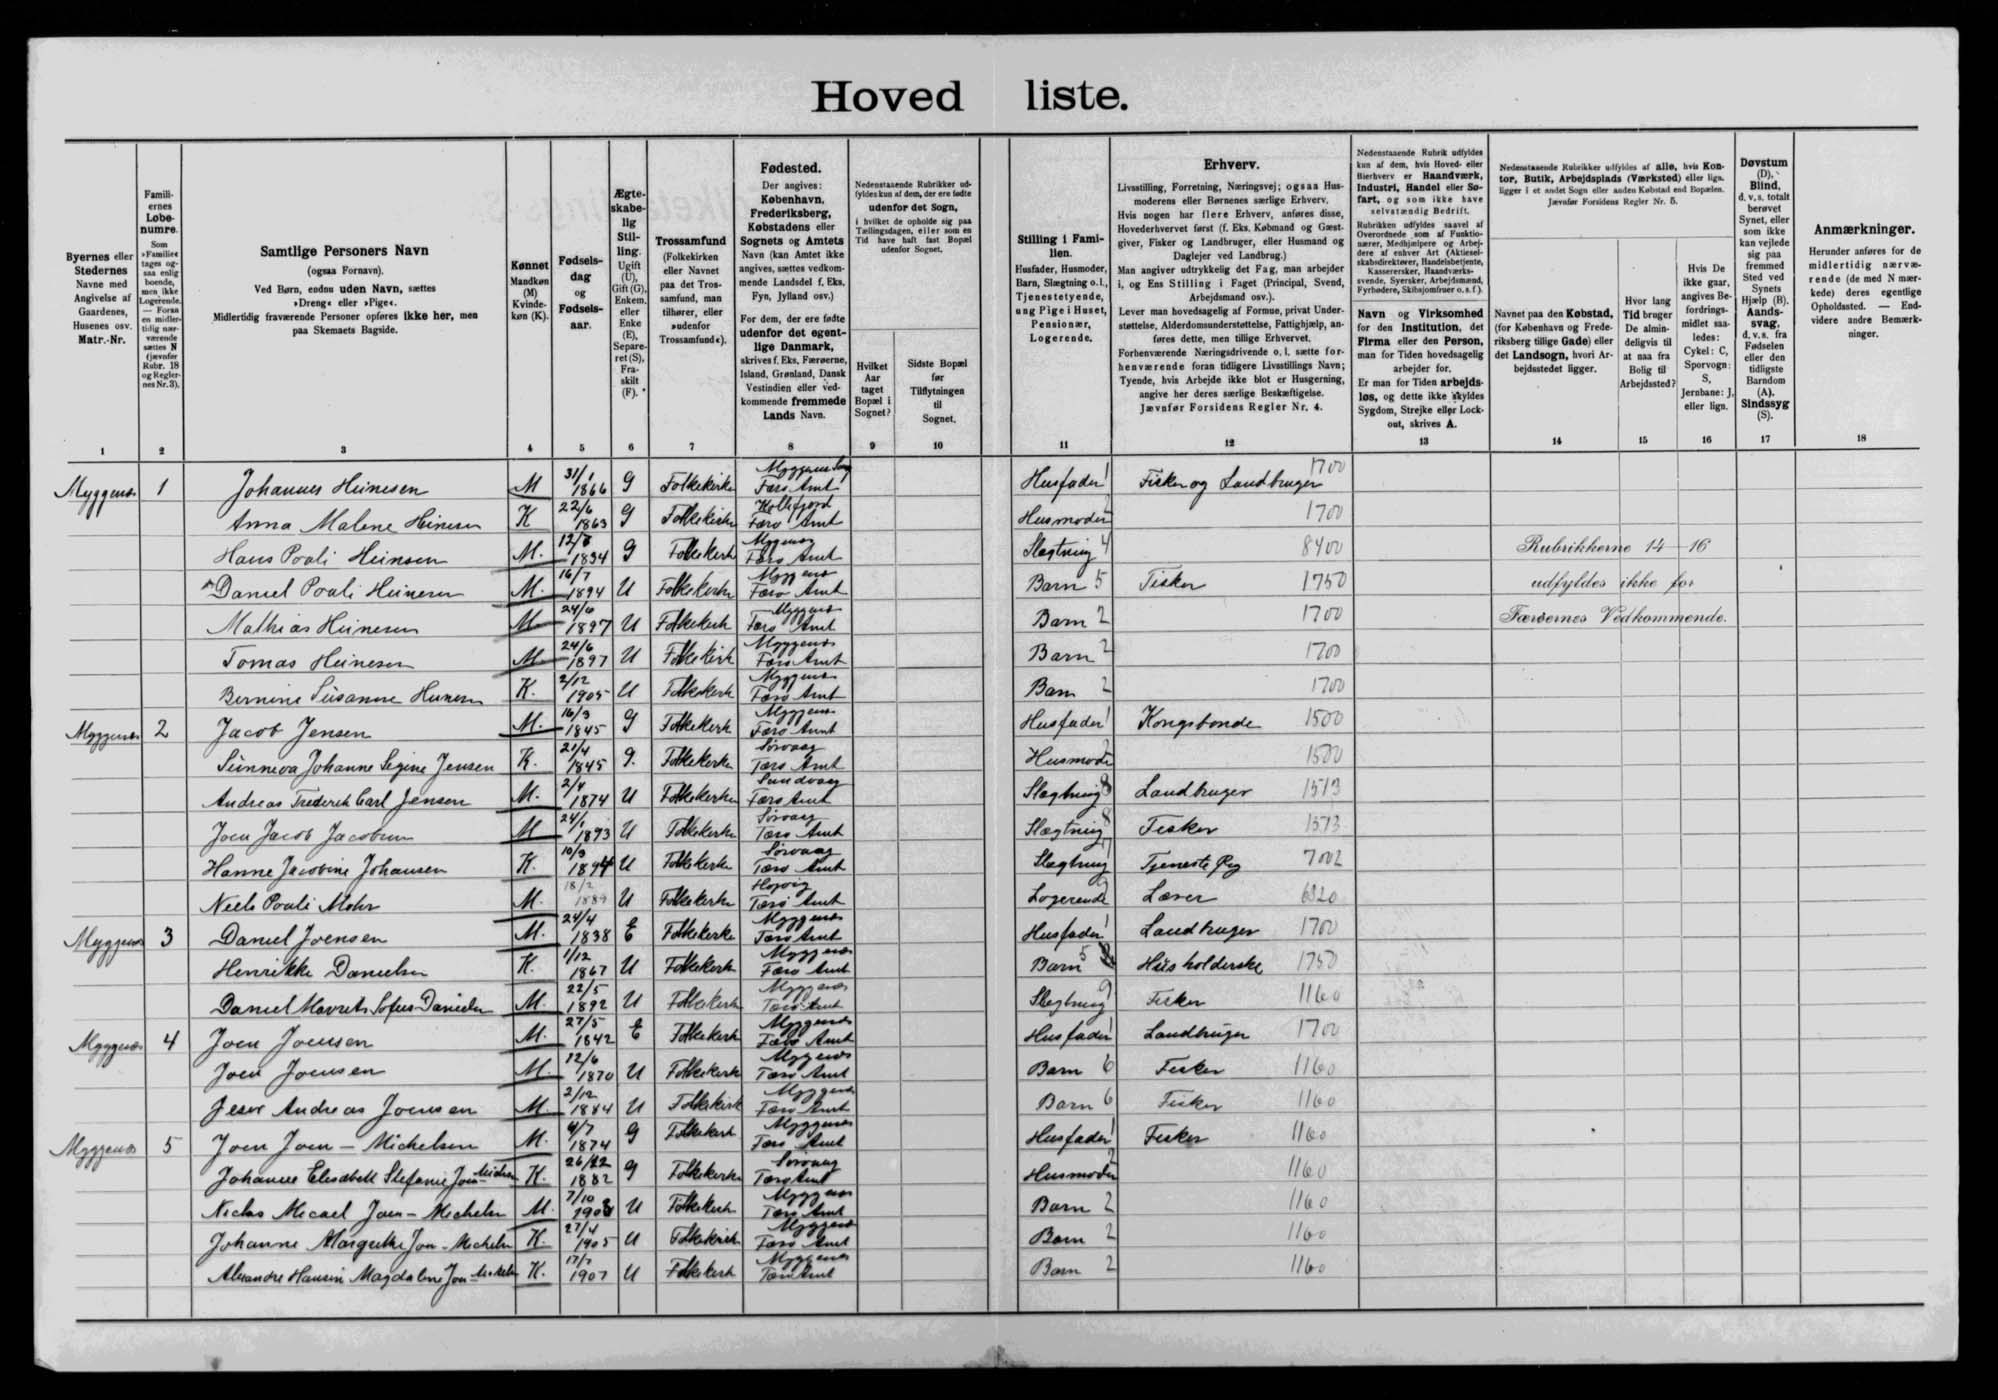 Hoved liste.
Byernes eller
Stedernes
Navne med
Angivelse af
Gaardenes,
Husenes osv.
Matr.-Nr.
Famili-
ernes
Løbe-
numre.
Som
»Familie«
tages og-
saa enlig
boende,
men ikke
Logerende.
— Foran
en midler-
tidig nær-
værende
sættes N
(jævnfør
Rubr. 18
og Regler-
nes Nr. 3).
Samtlige Personers Navn
(ogsaa Fornavn).
Ved Børn, endnu uden Navn, sættes
»Dreng« eller »Pige«.
Midlertidig fraværende Personer opføres ikke her, men
paa Skemaets Bagside.
Kønnet
Mandkøn
(M)
Kvinde-
køn (K).
Fødsels-
dag
og
Fødsels-
aar.
Ægte-
skabe-
lig
Stil-
ling.
Ugift
(U),
Gift (G),
Enkem.
eller
Enke
(E),
Separe-
ret (S),
Fra-
skilt
(F).
Trossamfund
(Folkekirken
eller Navnet
paa det Tros-
samfund, man
tilhører, eller
»udenfor
Trossamfund«).
Fødested.
Der angives:
København,
Frederiksberg,
Købstadens eller
Sognets og Amtets
Navn (kan Amtet ikke
angives, sættes vedkom-
mende Landsdel f. Eks.
Fyn, Jylland osv.)
For dem, der ere fødte
udenfor det egent-
lige Danmark,
skrives f. Eks. Færøerne,
Island, Grønland, Dansk
Vestindien eller ved-
kommende fremmede
Lands Navn.
Nedenstaaende Rubrikker ud-
fyldes kun af dem, der ere fødte
udenfor det Sogn,
i hvilket de opholde sig paa
Tællingsdagen, eller som en
Tid have haft fast Bopæl
udenfor Sognet.
Hvilket
Aar
taget
Bopæl i
Sognet?
Sidste Bopæl
før
Tilflytningen
til
Sognet.
Stilling i Fami-
lien.
Husfader, Husmoder,
Barn, Slægtning o.l.,
Tjenestetyende,
ung Pige i Huset,
Pensionær,
Logerende.
Erhverv.
Livsstilling, Forretning, Næringsvej; ogsaa Hus-
moderens eller Børnenes særlige Erhverv.
Hvis nogen har flere Erhverv, anføres disse,
Hovederhvervet først (f. Eks. Købmand og Gæst-
giver, Fisker og Landbruger, eller Husmand og
Daglejer ved Landbrug.)
Man angiver udtrykkelig det Fag, man arbejder
i, og Ens Stilling i Faget (Principal, Svend,
Arbejdsmand osv.).
Lever man hovedsagelig af Formue, privat Under-
støttelse, Alderdomsunderstøttelse, Fattighjælp, an-
føres dette, men tillige Erhvervet.
Forhenværende Næringsdrivende o. l. sætte for-
henværende foran tidligere Livsstillings Navn;
Tyende, hvis Arbejde ikke blot er Husgerning,
angive her deres særlige Beskæftigelse.
Jævnfør Forsidens Regler Nr. 4.
Nedenstaaende Rubrik udfyldes
kun af dem, hvis Hoved- eller
Bierhverv er Haandværk,
Industri, Handel eller Sø-
fart, og som ikke have
selvstændig Bedrift.
Rubrikken udfyldes saavel af
Overordnede som af Funktio-
nærer, Medhjælpere og Arbej-
dere af enhver Art (Aktiesel-
skabsdirektører, Handelsbetjente,
Kasserersker, Haandværks-
svende, Syersker, Arbejdsmænd,
Fyrbødere, Skibsjomfruer o.s.f.).
Navn og Virksomhed
for den Institution, det
Firma eller den Person,
man for Tiden hovedsagelig
arbejder for.
Er man for Tiden arbejds-
løs, og dette ikke skyldes
Sygdom, Strejke eller Lock-
out, skrives A.
Nedenstaaende Rubrikker udfyldes af alle, hvis Kon-
tor, Butik, Arbejdsplads (Værksted) eller lign.
ligger i et andet Sogn eller anden Købstad end Bopælen.
Jævnfør Forsidens Regler Nr. 5.
Navnet paa den Købstad,
(for København og Frede-
riksberg tillige Gade) eller
det Landsogn, hvori Ar-
bejdsstedet ligger.
Hvor lang
Tid bruger
De almin-
deligvis til
at naa fra
Bolig til
Arbejdssted?
Hvis De
ikke gaar,
angives Be-
fordrings-
midlet saa-
ledes:
Cykel: C,
Sporvogn:
S,
Jernbane: J,
eller lign.
Døvstum
(D).
Blind,
d. v. s. totalt
berøvet
Synet, eller
som ikke
kan vejlede
sig paa
fremmed
Sted ved
Synets
Hjælp (B).
Aands-
svag,
d. v. s. fra
Fødselen
eller den
tidligste
Barndom
(A).
Sindssyg
(S).
Anmærkninger.
Herunder anføres for de
midlertidig nærvæ-
rende (de med N mær-
kede) deres egentlige
Opholdssted. — End-
videre andre Bemærk-
ninger.
1 2 3 4 5 6 7 8 9 10 11 12 13 14 15 16 17 18
Myggenæs 1 Johannes Heinesen M 31/1 1866 G Folkekirke Færø Amt Husfader 1 Fisker og Landbruger 1700
Anna Malene Heinesen K 22/6 1863 G Folkekirke Kollefjord Færø Amt Husmoder 2 1700
Hans Poali Heinesen M. 1834 G Folkekirk Færø Amt Slægtning 4 8400 Rubrikkerne 14—16
Daniel Poali Heinesen M. 16/7 1894 U Folkekirke Myggenæs Færø Amt Barn 5 Fisker 1750 udfyldes ikke for
Mathias Heinesen M. 24/6 1897 U Folkekirk Myggenæs Færø Amt Barn 2 1700 Færøernes Vedkommende.
Tomas Heinesen M. 24/6 1897 U Folkekirk Myggenæs Færø Amt Barn 2 1700
Bernine Susanne Heinesen K. 2/12 1905 U Folkekirk Myggenæs Færø Amt Barn 2 1700
Myggenæs 2 Jacob Jensen M. 16/3 1845 G Folkekirk Myggenæs Færø Amt Husfader 1 Kongsbonde 1500
Sunneva Johanne Sigine Jensen K. 21/4 1845 G. Folkekirke Sørvaag Færø Amt Husmoder 2 1500
Andreas Frederik Carl Jensen M. 2/4 1874 U Folkekirke Sandvaag Færø Amt Slægtning 8 Landbruger 1513
Joen Jacob Jacobsen M 24/1 1893 U Folkekirke Sørvaag Færø Amt Slægtning 8 Fisker 1513
Hanne Jacobine Johansen K. 10/3 U Folkekirke Sørvaag Færø Amt Slægtning Tjeneste Pig 7002
Niels Poali Mohr M. 18/2 1889 U Folkekirke Færø Amt Logerende 9 Lærer 6820
Myggenæs 3 Daniel Joensen M. 24/4 1838 E Folkekirke Myggenæs Færø Amt Husfader 1 Landbruger 1700
Henrikke Danielsen K. 1/12 1867 U Folkekirk Myggenæs Færø Amt Barn 5 Husholderske 1750
Daniel Mavrits Sofus Danielsen M. 22/5 1892 U Folkekirk Myggenæs Færø Amt Slægtning 9 Fisker 1160
Myggenæs 4 Joen Joensen M. 27/5 1842 E Folkekirk Myggenæs Færø Amt Husfader 1 Landbruger 1700
Joen Joensen M. 12/6 1870 U Folkekirk Myggenæs Færø Amt Barn 6 Fisker 1160
Jesve Andreas Joensen M. 2/12 1884 U Folkekirk Myggenæs Færø Amt Barn 6 Fisker 1160
Myggenæs 5 Joen Joen-Michelsen M. 4/7 1874 G Folkekirk Myggenæs Færø Amt Husfader 1 Fisker 1160
Johanne Elisabeth Stefanie Joen-Michelsen K. 1882 G Folkekirke Sørvaag Færø Amt Husmoder 2 1160
Niclas Micael Joen-Michelsen M. 7/10 U Folkekirk Myggenæs Færø Amt Barn 2 1160
Johanne Margrethe Joen-Michelsen K. 27/4 1905 U Folkekirk Myggenæs Færø Amt Barn 2 1160
Alexandre Hansin Magdalene Joen-Michelsen K. 1907 U Folkekirk Myggenæs Færø Amt Barn 2 1160